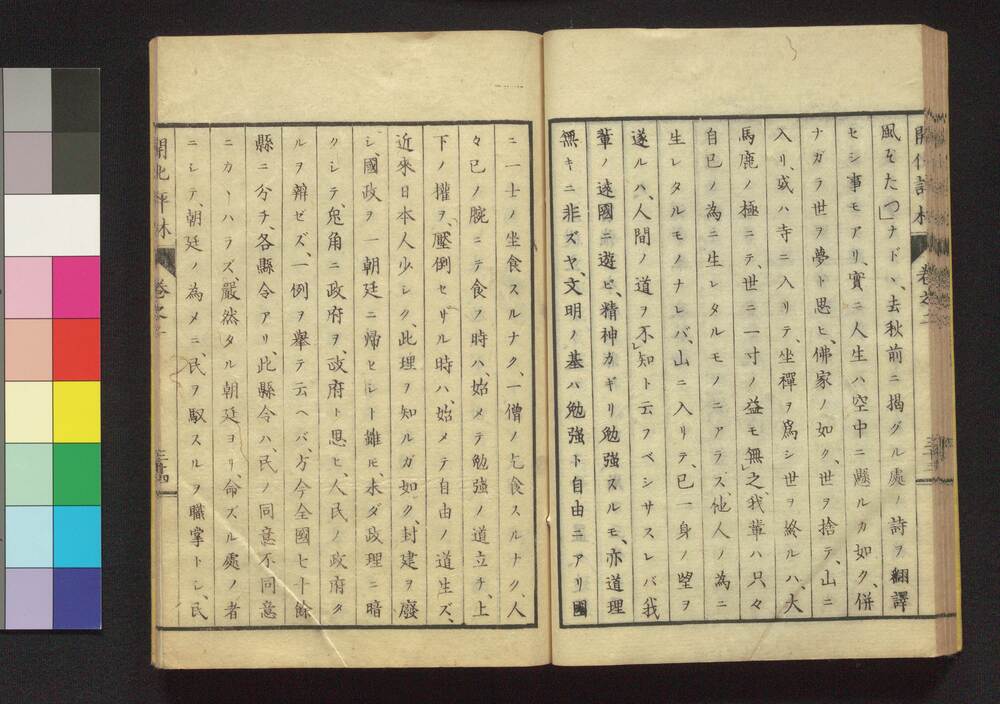 開化評林 巻之二
風をたつ」ナドヽ、去秋前ニ揭グル處ノ詩ヲ翻譯
セシ事モアリ、實ニ人生ハ空中ニ懸ルカ如ク、併
ナガラ世ヲ夢ト思ヒ、佛家ノ如ク、世ヲ捨テ、山ニ
入リ、或ハ寺ニ入リテ、坐禪ヲ爲シ世ヲ終ルハ、大
馬鹿ノ極ニテ、世ニ一寸ノ益モ無之、我輩ハ只々
自已ノ為ニ生レタルモノニアラズ、他人ノ為ニ
生レタルモノナレバ、山ニ入リテ、已一身ノ望ヲ
遂ルハ、人間ノ道ヲ不」知ト云フベシサスレバ我
輩ノ遠國ニ遊ビ、精神カギリ勉強スルモ、亦道理
無キニ非ズヤ、文明ノ基ハ勉強ト自由ニアリ國
ニ一士ノ坐食スルナク、一僧ノ乞食スルナク、人
々已ノ腕ニテ食フ時ハ、始メテ勉強ノ道立チ、上
下ノ權ヲ、壓倒セザル時ハ、始メテ自由ノ道生ズ、
近來日本人少シク、此理ヲ知ルガ如ク、封建ヲ廢
シ、國政ヲ一朝廷ニ帰セシト雖モ、未ダ政理ニ暗
クシテ、兎角ニ政府ヲ、政府ト思ヒ、人民ノ政府タ
ルヲ辨ゼズ、一例ヲ舉テ云ヘバ、方今全國七十餘
縣ニ分チ、各縣令アリ、此縣令ハ、民ノ同意不同意
ニカヽハラズ、嚴然タル朝廷ヨリ、命ズル處ノ者
ニシテ、朝廷ノ為メニ、民ヲ馭スルヲ職掌トシ、民
開化評林 巻之二